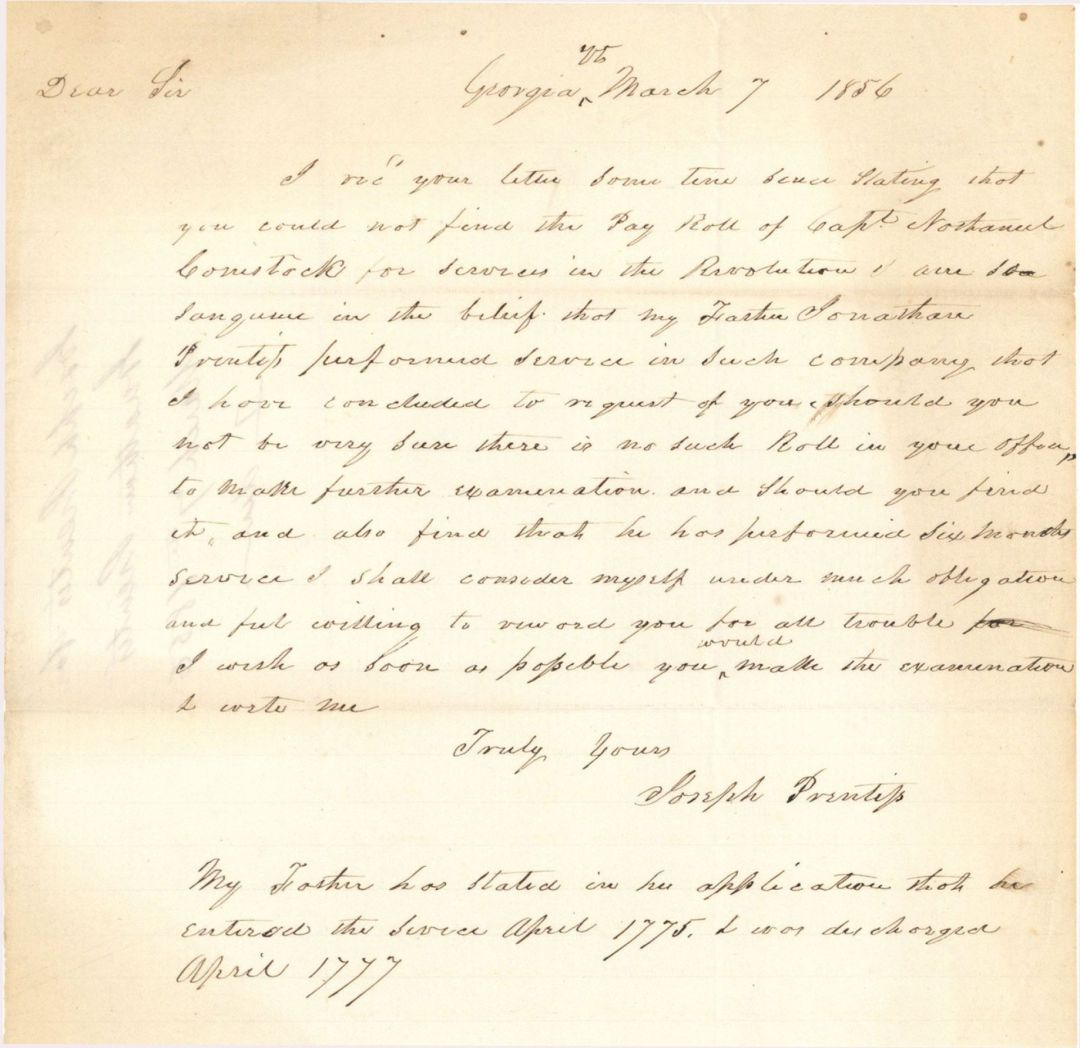 Dear Sir Georgia Vt March 7 1856
I rec'd your letter some time since stating that
you could not find the Pay Roll of Capt. Nathaniel
Comstock for services in the Revolution I am so
sanguine in the belief that my Father Jonathan
Prentiss performed service in such company that
I have concluded to request of you should you
not be very sure there is no such Roll in your office,
to make further examination and should you find
it, and also find that he has performed six months
service I shall consider myself under much obligation
and feel willing to reward you for all trouble for
I wish as soon as possible you would make the examination
& write me
Truly Yours
Joseph Prentiss
My Father has stated in his application that he
entered the service April 1775. & was discharged
April 1777